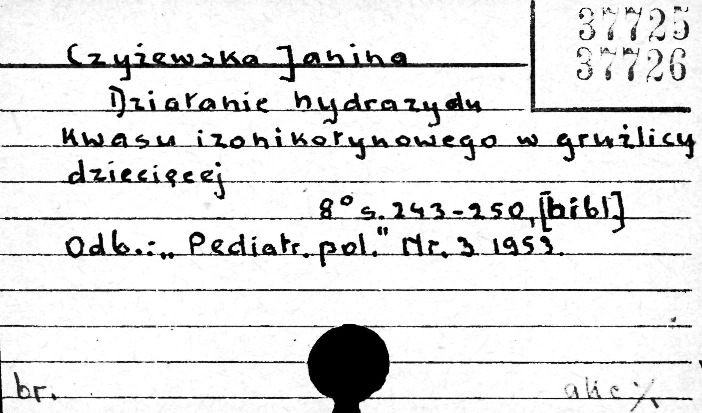 37725
37726
Czyżewska Janina
Działanie hydrazydu
kwasu izonikotynowego w gruźlicy
dziecięcej
8° s. 243-250, [bibl]
Odb.: „Pediatr. pol." Nr. 3 1953.
br.
akc